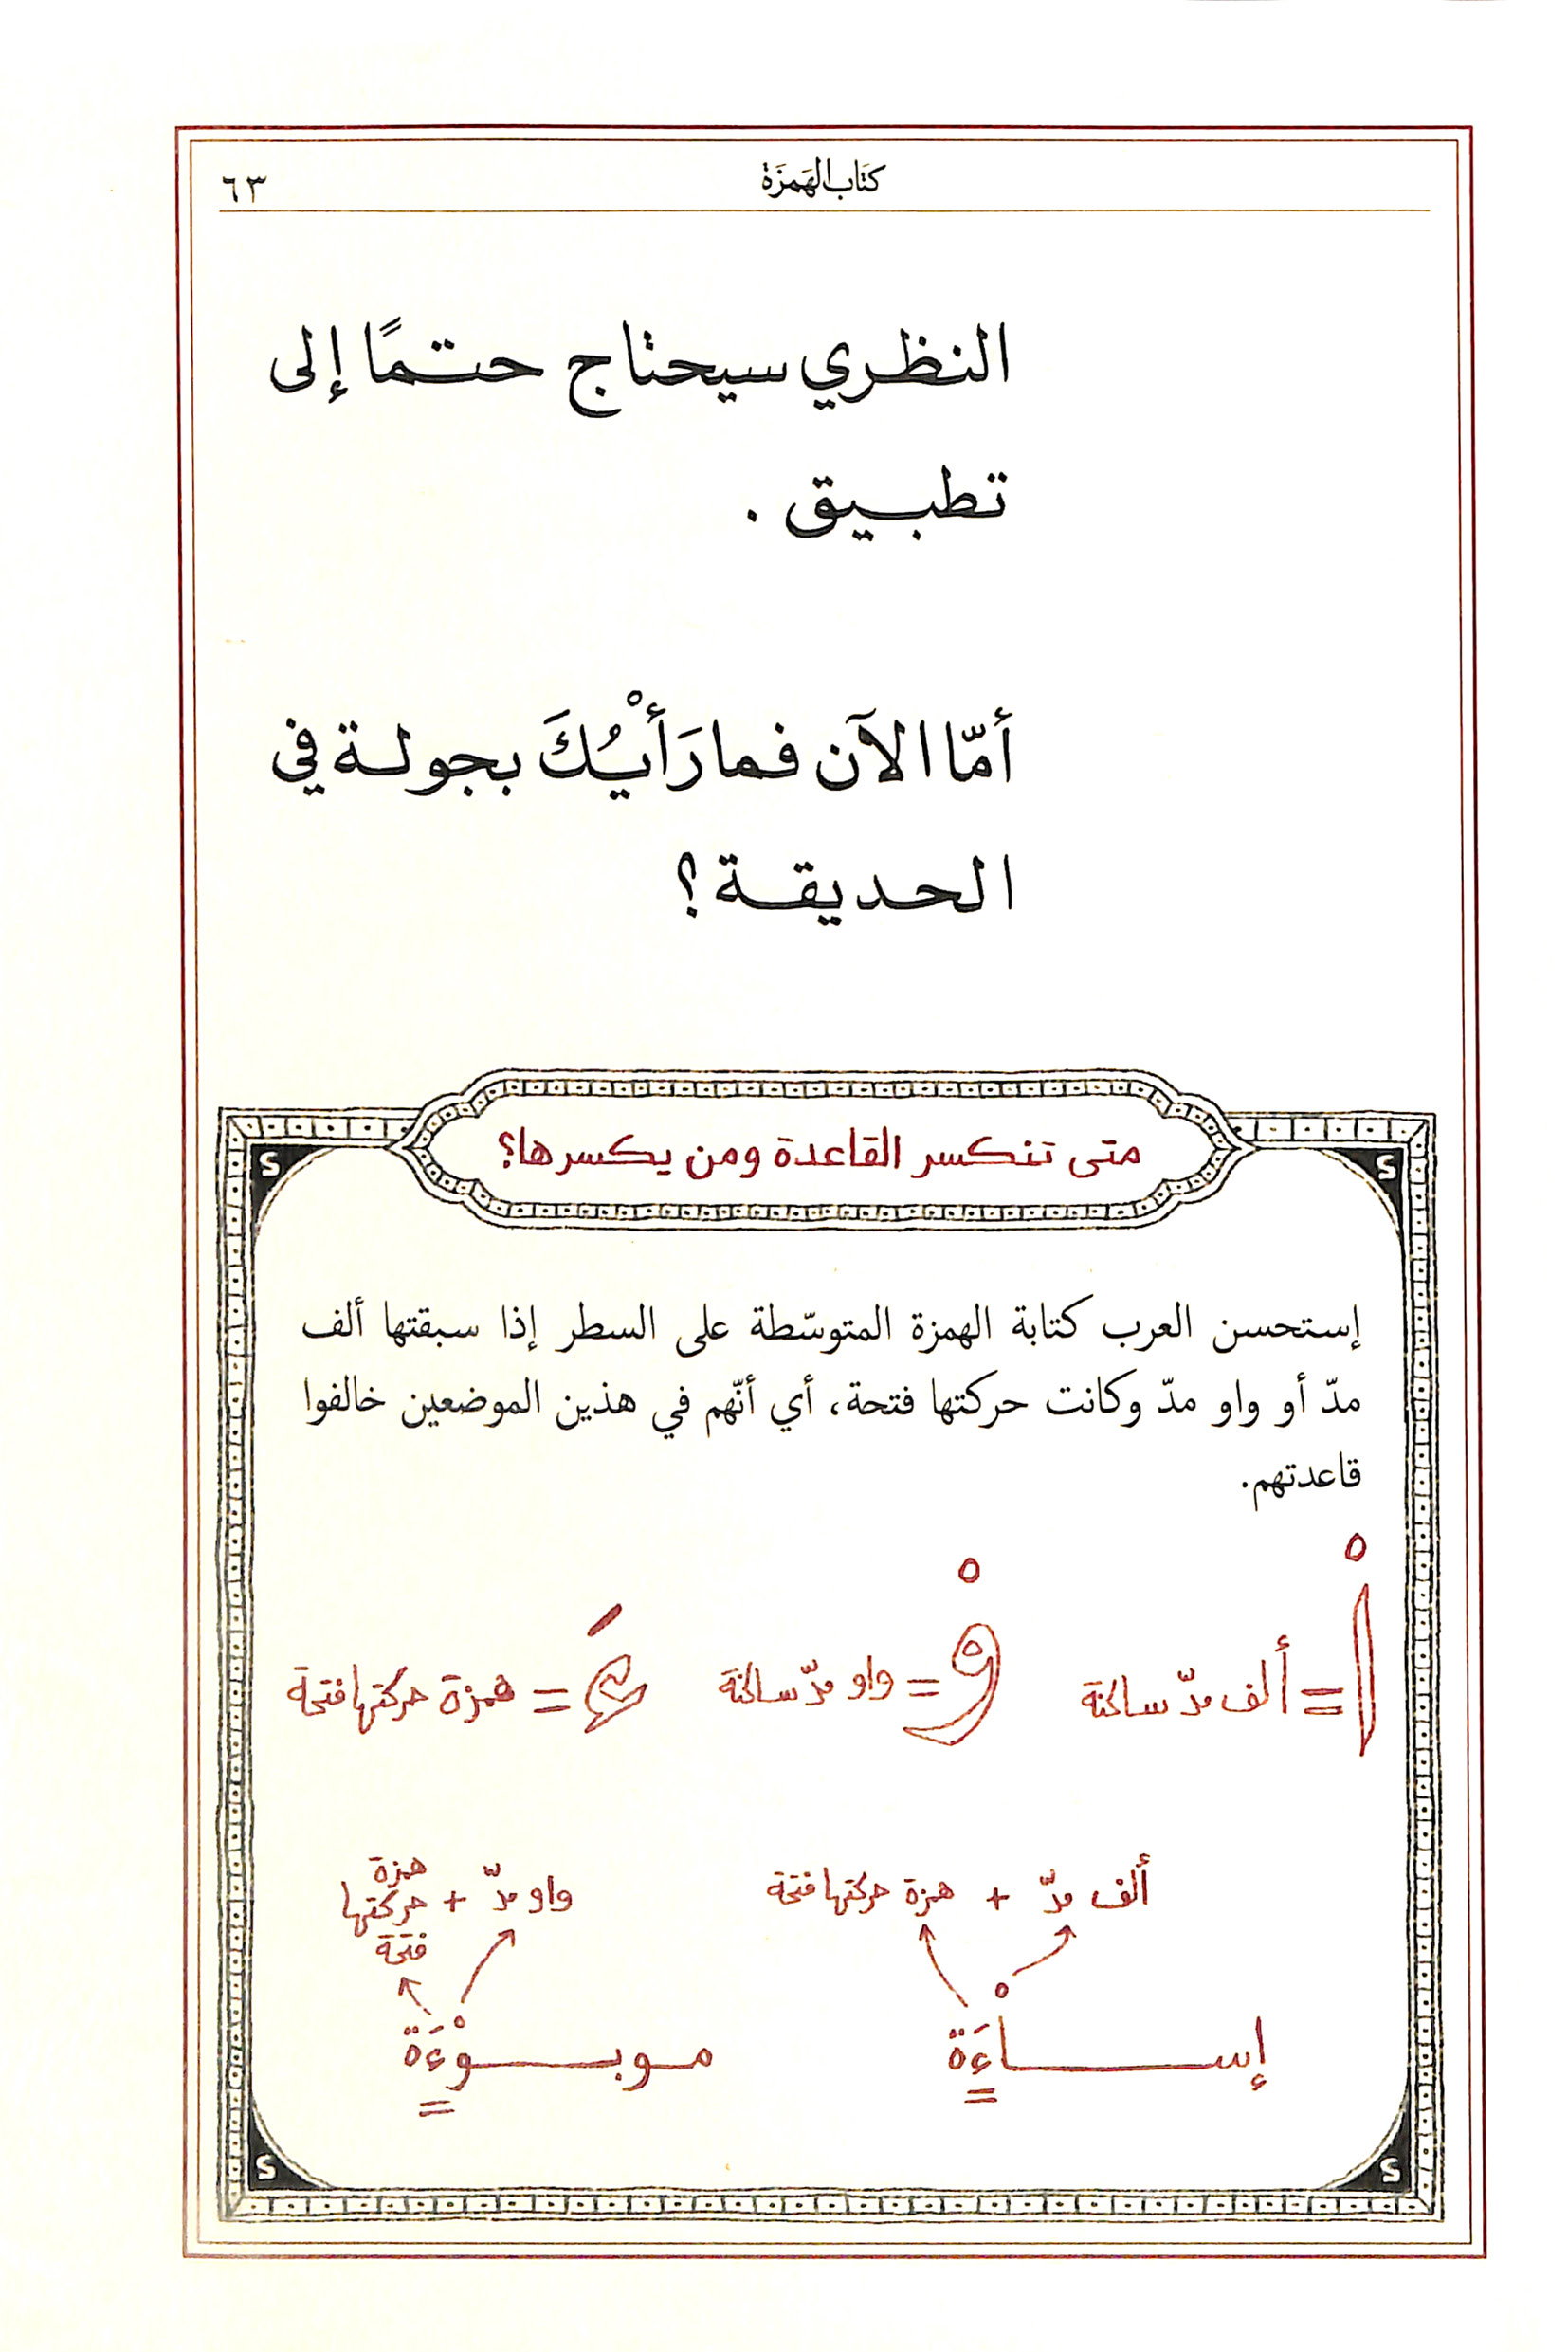 كتَاب الهَمزَة
٦٣
النظري سيحتاج حتمًا إلى
تطبيق .
أمّا الآن فما رَأْيُكَ بجولة في
الحديقة؟
متى تنكسر القاعدة ومن يكسرها؟
إستحسن العرب كتابة الهمزة المتوسّطة على السطر إذا سبقتها ألف
مدّ أو واو مدّ وكانت حركتها فتحة، أي أنّهم في هذين الموضعين خالفوا
قاعدتهم.
اْ = ألف مدّ ساكنة
وْ = واو مدّ ساكنة
ءَ = همزة حركتها فتحة
ألف مدّ + همزة حركتها فتحة
إســـاْءَة
واو مدّ + همزة
حركتها
فتحة
موبـــوْءَة